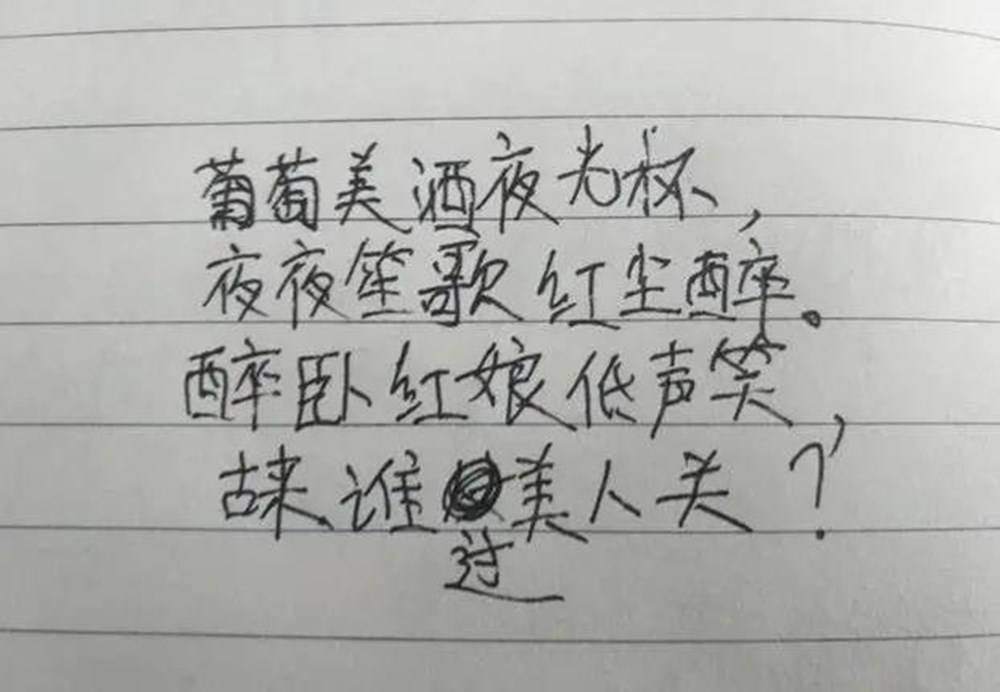 葡萄美酒夜光杯,
夜夜笙歌红尘醉。
醉卧红娘低声笑,
古来谁过美人关?